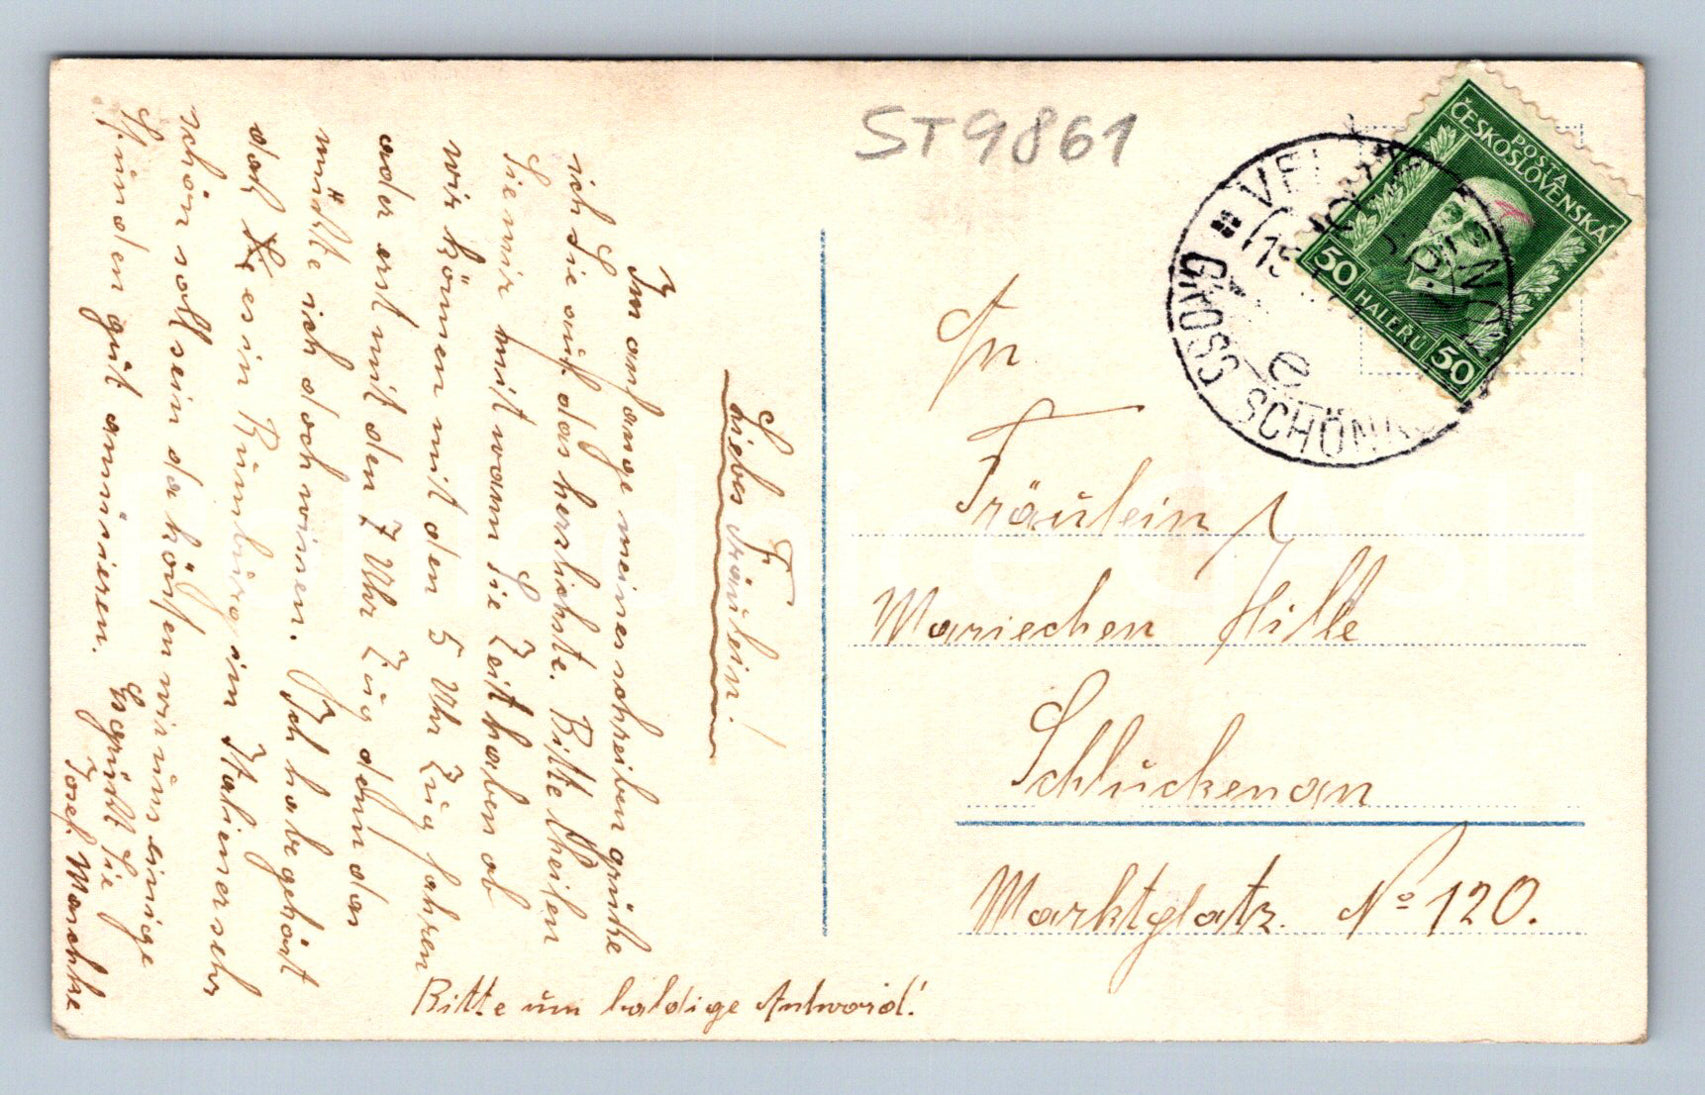 ST9861
POŠTA
ČESKOSLOVENSKÁ
50 HALÉŘŮ 50
GROSS SCHÖN
e
An
Fräulein
Mariechen Hille
Schluckenan
Marktplatz. No 120.
Liebes Fräulein!
Im anfange meines schreiben grüße
ich Sie auf das herzlichste. Bitte theilen
Sie mir mit wann Sie Zeit haben ob
wir können mit den 5 Uhr Zug fahren
oder erst mit den 7 Uhr Zug denn das
müßte ich doch wissen. Ich habe gehört
das es in Rumburg im Italiener sehr
schön soll sein da könten wir uns einige
Stunden gut amüsieren. Es grüßt Sie
Josef Maschke
Bitte um baldige Antword!